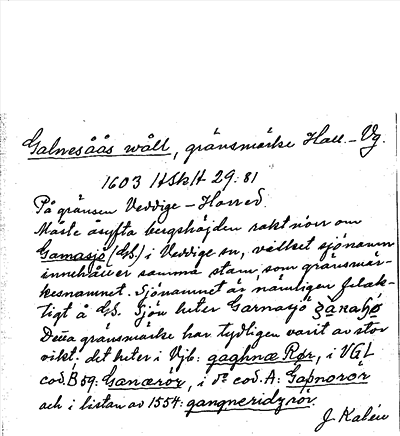 Galnesåås wåll, gränsmärke Hall.–Vg.
1603 HSkH 29:81
På gränsen Veddige – Horred.
Måste åsyfta bergshöjden rakt norr om
Gamasjö (GS.) i Veddige sn, vilket sjönamn
innehåller samma stam som gränsmär-
kesnamnet. Sjönamnet är nämligen felak-
tigt å GS. Sjön heter Garnasjö
Detta gränsmärke har tydligen varit av stor
vikt: det heter i Vjb: gaghnæ Rør, i VGL
cod. B 59: Ganærör, i d:o cod. A: Gapnorör
och i listan av 1554: gangneridyrör.
J. Kalén